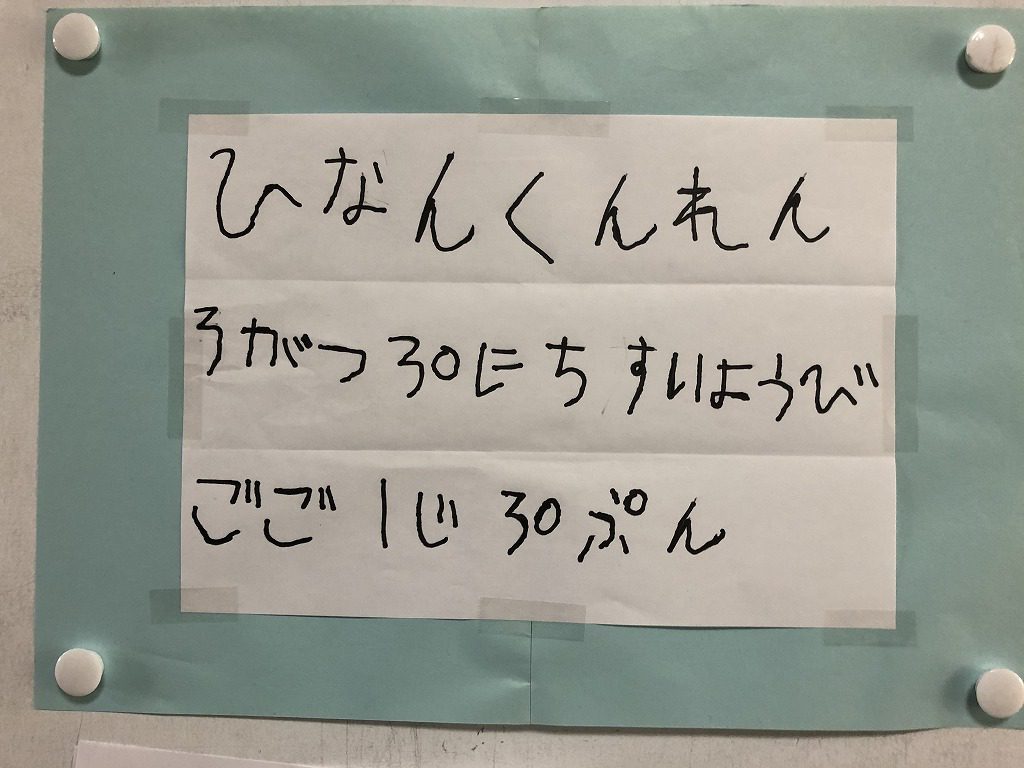 ひなんくんれん
3がつ30にち すいようび
ごご 1じ 30ぷん